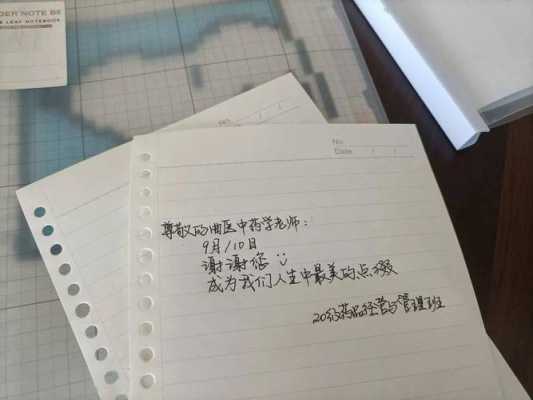 DER NOTE B5
E LEAF NOTEBOOK
No.
Date / /
尊敬的曲医中药学老师：
9月10日
谢谢您
成为我们人生中最美的点缀
20级药品经营与管理班